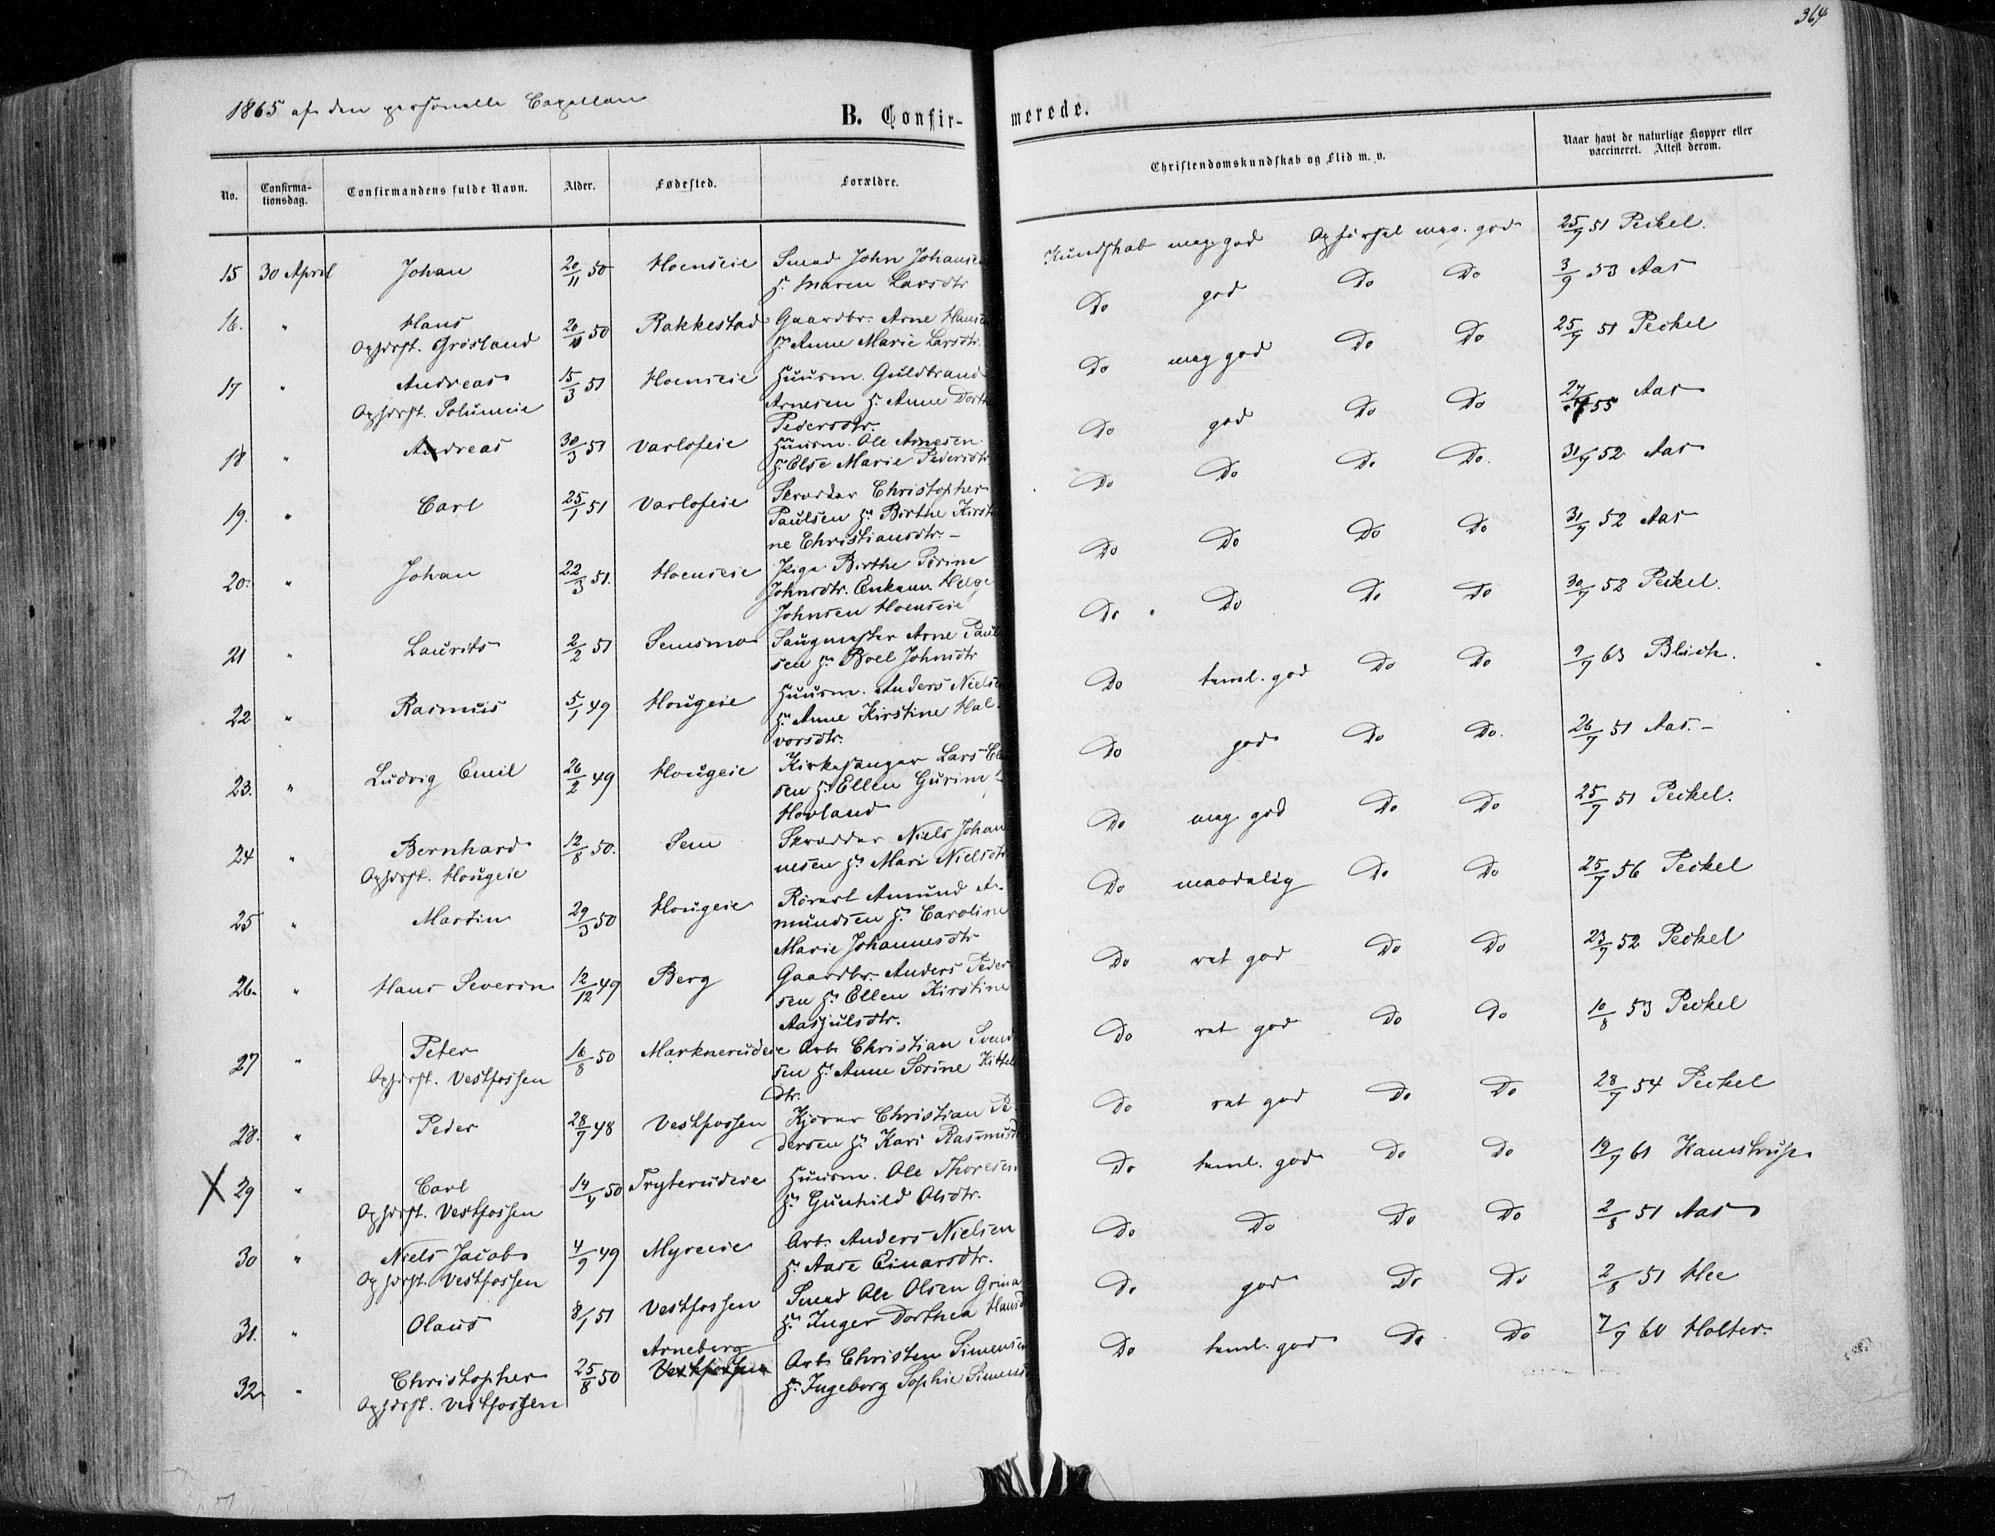 364
1865 af den personelle Capellan
B. Confir-
merede.
No.
Confirma-
tionsdag.
Confirmandens fulde Navn.
Alder.
Fødested.
Forældre.
Christendomskundskab og Flid m. v.
Naar havt de naturlige Kopper eller
vaccineret. Attest derom.
15 30 April Johan 20/11 50 Hoenseie Smed John Johansen
H: Maren Larsdtr
Kundskab meg. god Opførsel meg. god 25/7 51 Peckel.
16. " Hans 20/11 50 Rakkestad Gaardbr. Arne Hansen
Opforst. Grøsland H: Anne Marie Larsdtr.
Do god Do Do 3/9 53 Aas
17 " Andreas 15/3 51 Hoenseie Huusm. Guldbrand
Opforst. Solumeie Arnesen H: Anne Dorthe
Pedersdtr.
Do meg god Do Do 25/7 51 Peckel
18 " Andreas 30/3 51 Varlofeie Huusm. Ole Arnesen
H: Else Marie Pedersdtr
Do god Do Do 27/7 55 Aas
19. " Carl 25/1 51 Varlofeie Skrædder Christopher
Paulsen H: Birthe Kirsti-
ne Christiansdtr. -
Do Do Do Do. 31/7 52 Aas
20. " Johan 22/3 51. Hoenseie Pige Birthe Torine
Johnsdtr. Enkem. Helge
Johnsen Hoenseie
Do Do Do Do 31/7 52 Aas
21 " Laurits 2/2 51 Semsmo Saugmester Arne Paul-
sen H: Boel Johnsdtr
Do Do Do Do 30/7 52 Peckel.
22 " Rasmus 5/1 49 Hougeie Huusm. Anders Nielsen
H: Anne Kirstine Hal-
vorsdtr.
Do teml. god Do Do 9/7 63 Blich.
23. " Ludvig Emil 26/2 49 Hougeie Kirkesanger Lars
sen H: Ellen Gurine
Hovland
Do god Do Do. 26/7 51 Aas. -
24 " Bernhard 12/8 50. Sem Skrædder Niels Johan-
Opforst. Hougeie nesen H: Mari Nielsdtr
Do meg god Do Do 25/7 51 Peckel.
25 " Martin 29/3 50 Hougeie Rørert Amund A-
mundsen H: Caroline
Marie Johannesdtr
Do maadelig Do Do 25/7 56 Peckel
26. " Hans Severin 12/12 49 Berg Gaardbr. Anders Peder-
sen H: Ellen Kirstine
Aasjulsdtr.
Do ret god Do Do 23/7 52 Peckel
27 " Peter 16/8 50 Marknerudeie Arb. Christian Svend-
Opforst. Vestfossen sen H: Anne Sørine Kittels
dtr.
Do ret god Do Do 10/8 53 Peckel
28. " Peder 28/7 48 Vestfossen Kjører Christian Pe-
dersen H: Kari Rasmusd
Do ret god Do Do 28/7 54 Peckel
X 29 " Carl 14/4 50 Tryterudeie Huusm. Ole Thoresen
Opforst. Vestfossen H: Gunhild Olsdtr.
Do teml. god Do Do 19/7 61 Hamstrup.
30 " Niels Jacob 4/9 49 Myreeie Arb. Anders Nielsen
Opforst. Vestfossen H: Aase Einarsdtr.
Do Do Do Do 2/8 51 Aas
31. " Olaus 8/1 51 Vestfossen Smed Ole Olsen
H: Inger Dorthea Hansd
Do god Do Do 2/8 51 Hee
32 " Christopher 25/8 50 Arneberg
Vestfossen Arb. Christen Simensen
Opforst. Vestfossen H: Ingeborg Sophie Simens
Do teml. god Do Do 7/9 60 Holter.